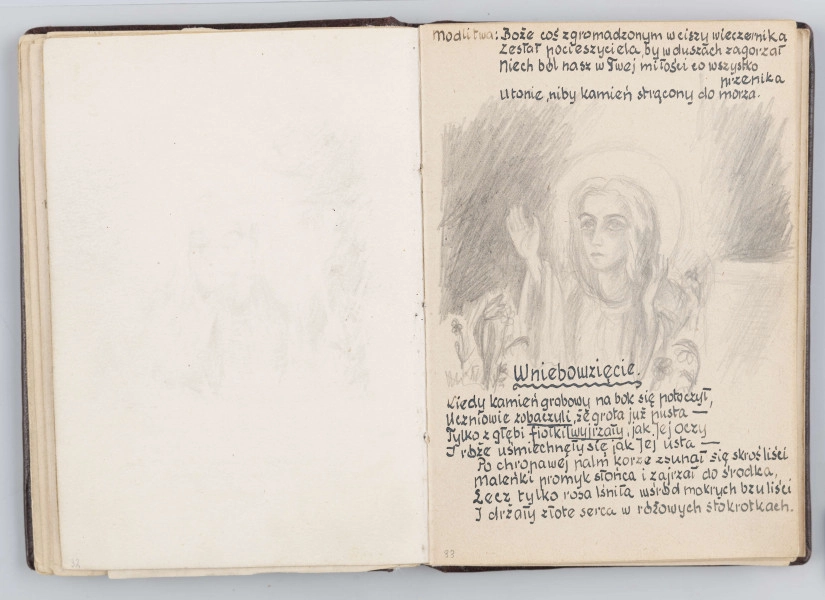 Modlitwa: Boże coś zgromadzonym w ciszy wieczernika
Zesłał pocieszyciela, by w duszach zagorzał
Niech ból nasz w Twej miłości co wszystko
przenika
Utonie, niby kamień strącony do morza.
Wniebowzięcie.
Kiedy kamień grobowy na bok się potoczył,
Uczniowie zobaczyli, że grota już pusta —
Tylko z głębi fiołki wyjrzały, jak Jej oczy
I róże uśmiechnęły się jak Jej usta —
Po chropawej palm korze zsunął się skroś liści
Maleńki promyk słońca i zajrzał do środka,
Lecz tylko rosa lśniła wśród mokrych bzu liści
I drżały złote serca w różowych stokrotkach.
33